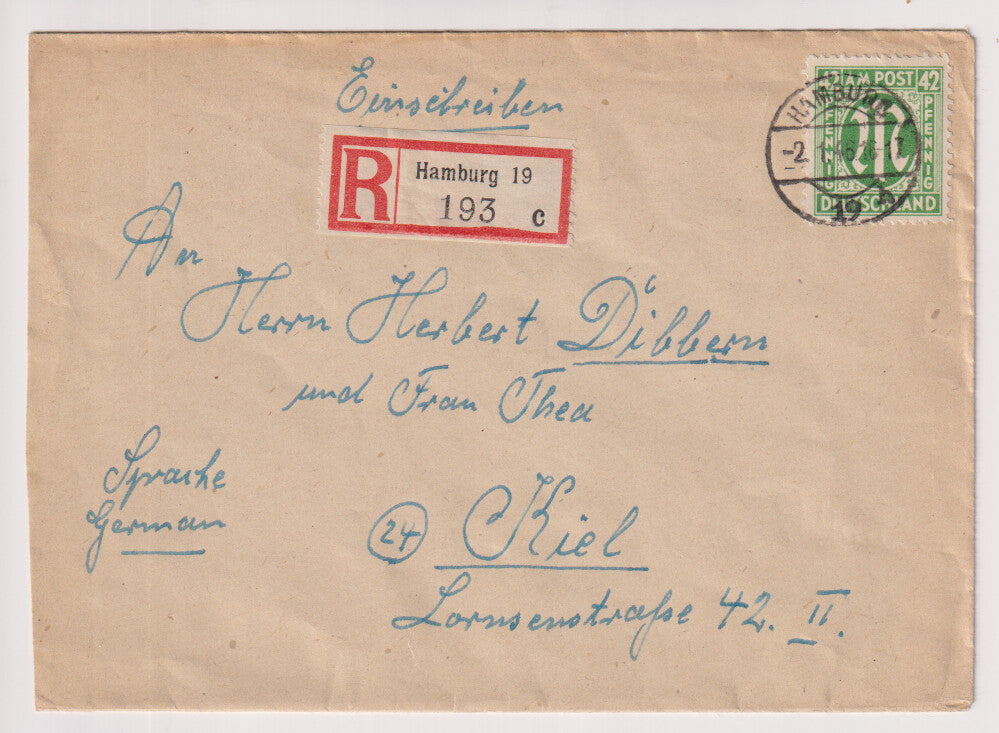 Einschreiben
R Hamburg 19
193 c
42 AM POST 42
PFENNIG PFENNIG
DEUTSCHLAND
HAMBURG
19
An
Herrn Herbert Dibbern
und Frau Thea
Sprache
German
24 Kiel
Lornsenstraße 42. II.